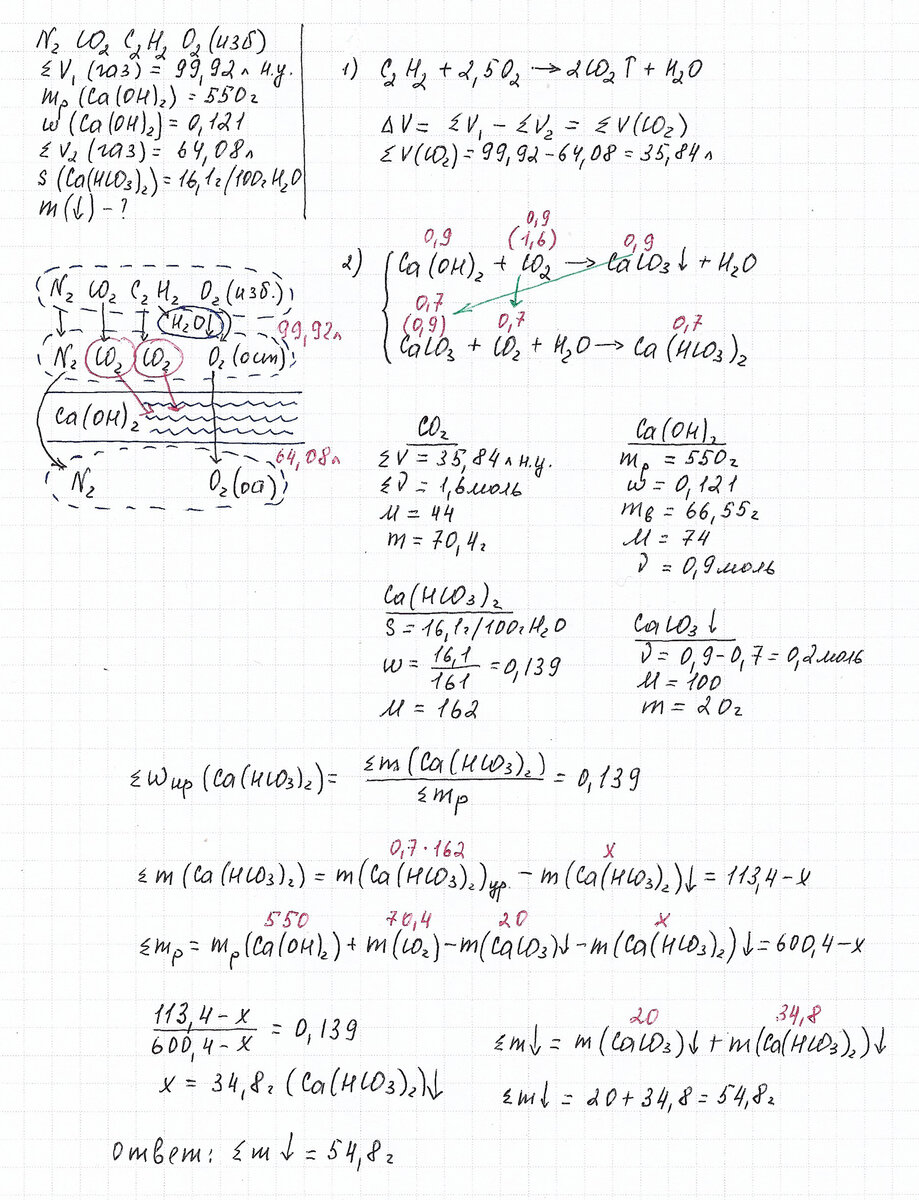 N₂ CO₂ C₂H₂ O₂ (изб)
ΣV₁ (газ) = 99,92 л н.у.
mр (Ca(OH)₂) = 550 г
w (Ca(OH)₂) = 0,121
ΣV₂ (газ) = 64,08 л
S (Ca(HCO₃)₂) = 16,1 г/100г H₂O
m (↓) - ?
1) C₂H₂ + 2,5O₂ → 2CO₂↑ + H₂O
ΔV = ΣV₁ - ΣV₂ = ΣV(CO₂)
ΣV(CO₂) = 99,92 - 64,08 = 35,84 л
N₂ CO₂ C₂H₂ O₂ (изб.)
H₂O↓
99,92 л
N₂ CO₂ CO₂ O₂ (ост)
Ca(OH)₂
64,08 л
N₂ O₂ (ост)
0,9
0,9 (1,6) 0,9
2) Ca(OH)₂ + CO₂ → CaCO₃↓ + H₂O
0,7
(0,9) 0,7 0,7
CaCO₃ + CO₂ + H₂O → Ca(HCO₃)₂
CO₂
ΣV = 35,84 л н.у.
Σν = 1,6 моль
M = 44
m = 70,4 г
Ca(OH)₂
mр = 550 г
w = 0,121
mв = 66,55 г
M = 74
ν = 0,9 моль
Ca(HCO₃)₂
S = 16,1 г/100г H₂O
w = 16,1/161 = 0,139
M = 162
CaCO₃↓
ν = 0,9 - 0,7 = 0,2 моль
M = 100
m = 20 г
Σwнр (Ca(HCO₃)₂) = Σm (Ca(HCO₃)₂) / Σmр = 0,139
0,7 · 162 x
Σm (Ca(HCO₃)₂) = m(Ca(HCO₃)₂)ур. - m(Ca(HCO₃)₂)↓ = 113,4 - x
550 70,4 20 x
Σmр = mр(Ca(OH)₂) + m(CO₂) - m(CaCO₃)↓ - m(Ca(HCO₃)₂)↓ = 600,4 - x
113,4 - x / 600,4 - x = 0,139
x = 34,8 г (Ca(HCO₃)₂)↓
20 34,8
Σm↓ = m(CaCO₃)↓ + m(Ca(HCO₃)₂)↓
Σm↓ = 20 + 34,8 = 54,8 г
Ответ: Σm↓ = 54,8 г